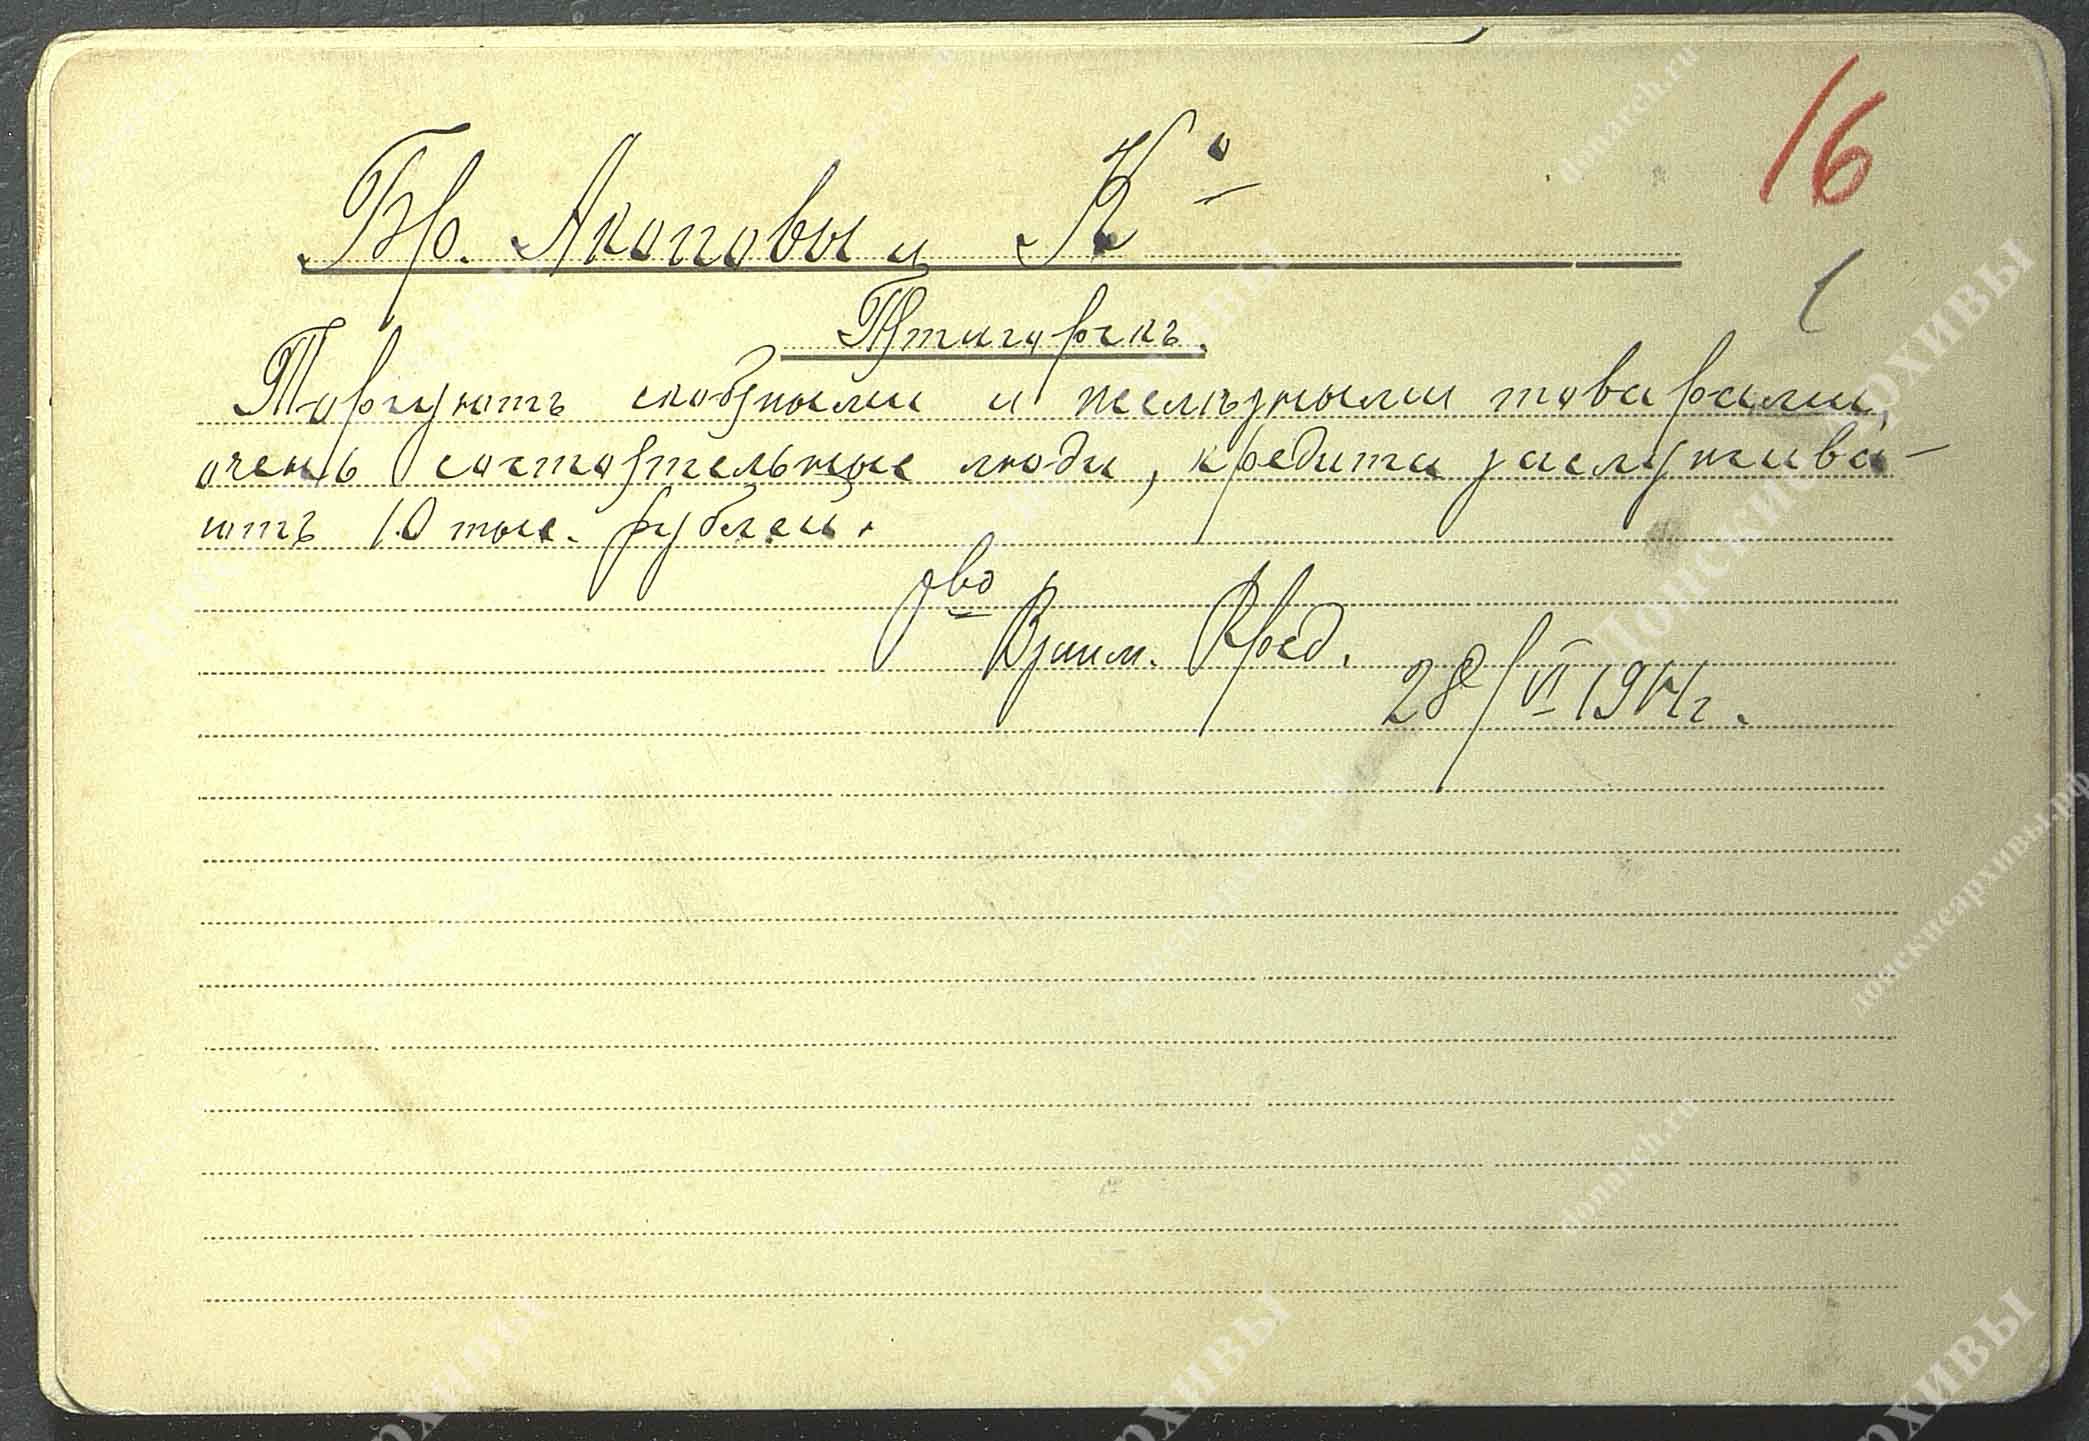 16
Бр. Акоповы и Ко
1
Пятигорскъ.
Торгуютъ скобяными и желѣзными товарами,
очень состоятельные люди, кредита заслужива-
ютъ 10 тыс. рублей.
О-во Взаим. Кред.
28/VI 1911 г.
donarch.ru
Донские Архивы
донскиеархивы.рф
donarch.ru
Архивы